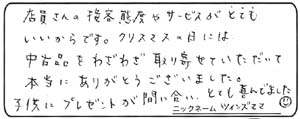 店員さんの接客態度やサービスがとても
いいからです。クリスマスの日には
中古品をわざわざ取り寄せていただいて
本当にありがとうございました。
子供にプレゼントが間に合い、とても喜んでました
ニックネーム ツインズママ